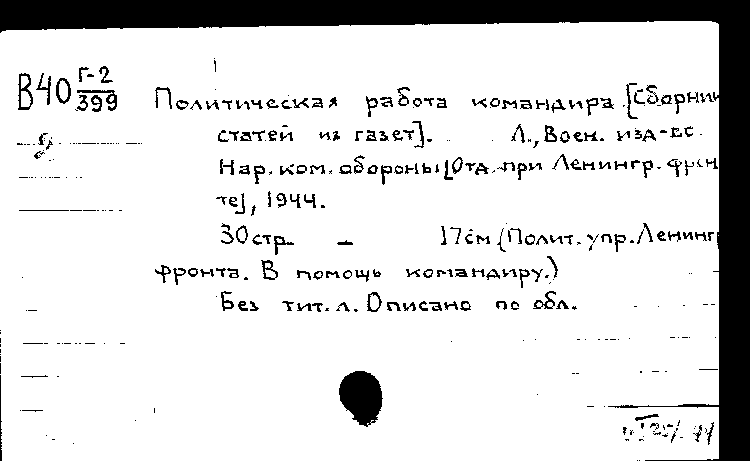 В40 Г-2
399
Политическая работа командира [Сборник
статей из газет]. Л., Воен. изд-во
Нар. ком. обороны [Отд. при Ленингр. фрон
те], 1944.
30 стр. – 17 см (Полит. упр. Ленингр
фронта. В помощь командиру.)
Без тит. л. Описано по обл.